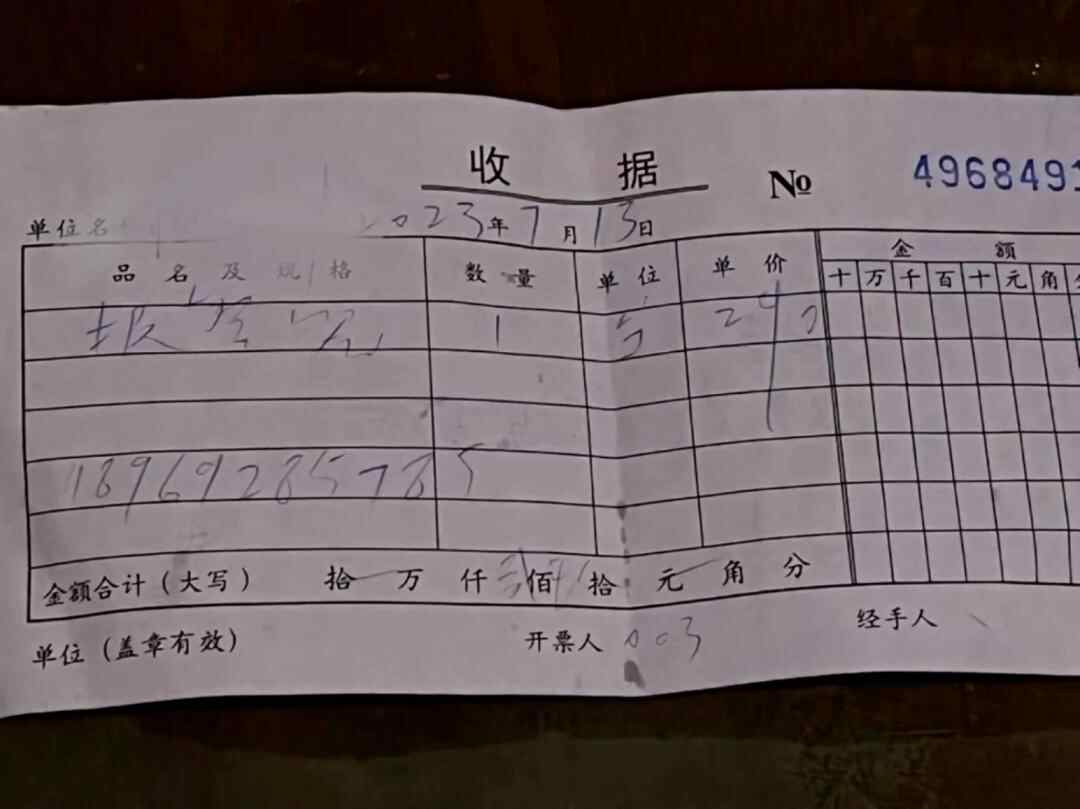 收 据 № 4968491
单位名 2023年7月13日
品名及规格 数量 单位 单价 金额
十万千百十元角分
1 290
18969285785
金额合计(大写) 拾 万 仟 贰佰 玖拾 元 角 分
单位(盖章有效) 开票人 003 经手人